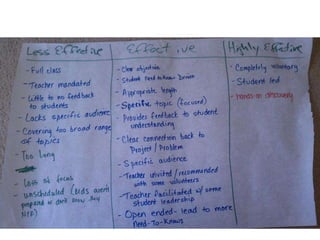 Less Effective
- Full class
- Teacher mandated
- Little to no feedback
to students
- Lacks specific audience
- Covering too broad range
of topics
- Too long
- Loss of focus
- unscheduled (kids aren't
prepared or don't know they
NEED)
Effective
- Clear objective
- Student Need to Know Driven
- Appropriate length
- Specific topic (focused)
- Provides feedback to student
understanding
- Clear connection back to
Project/Problem
- Specific audience
- Teacher invited/recommended
with some volunteers
- Teacher facilitated w/some
student leadership
- Open ended - lead to more
Need-To-Knows
Highly Effective
- Completely voluntary
- Student led
- hands-on discovery